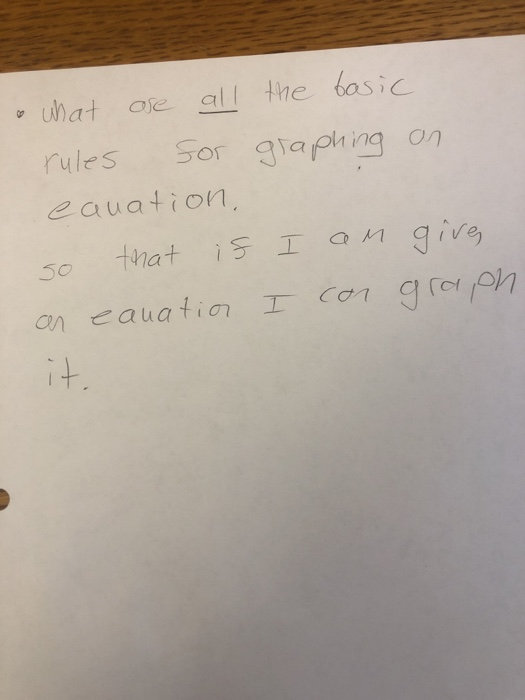 • what are all the basic
rules for graphing an
equation.
so that if I am given
an equation I can graph
it.